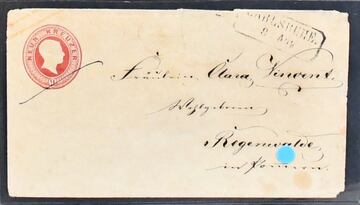 NEUN KREUZER
CARLSRUHE.
Fräulein Clara Vincent
Wohlgeboren
Regenwalde
in Pommern.